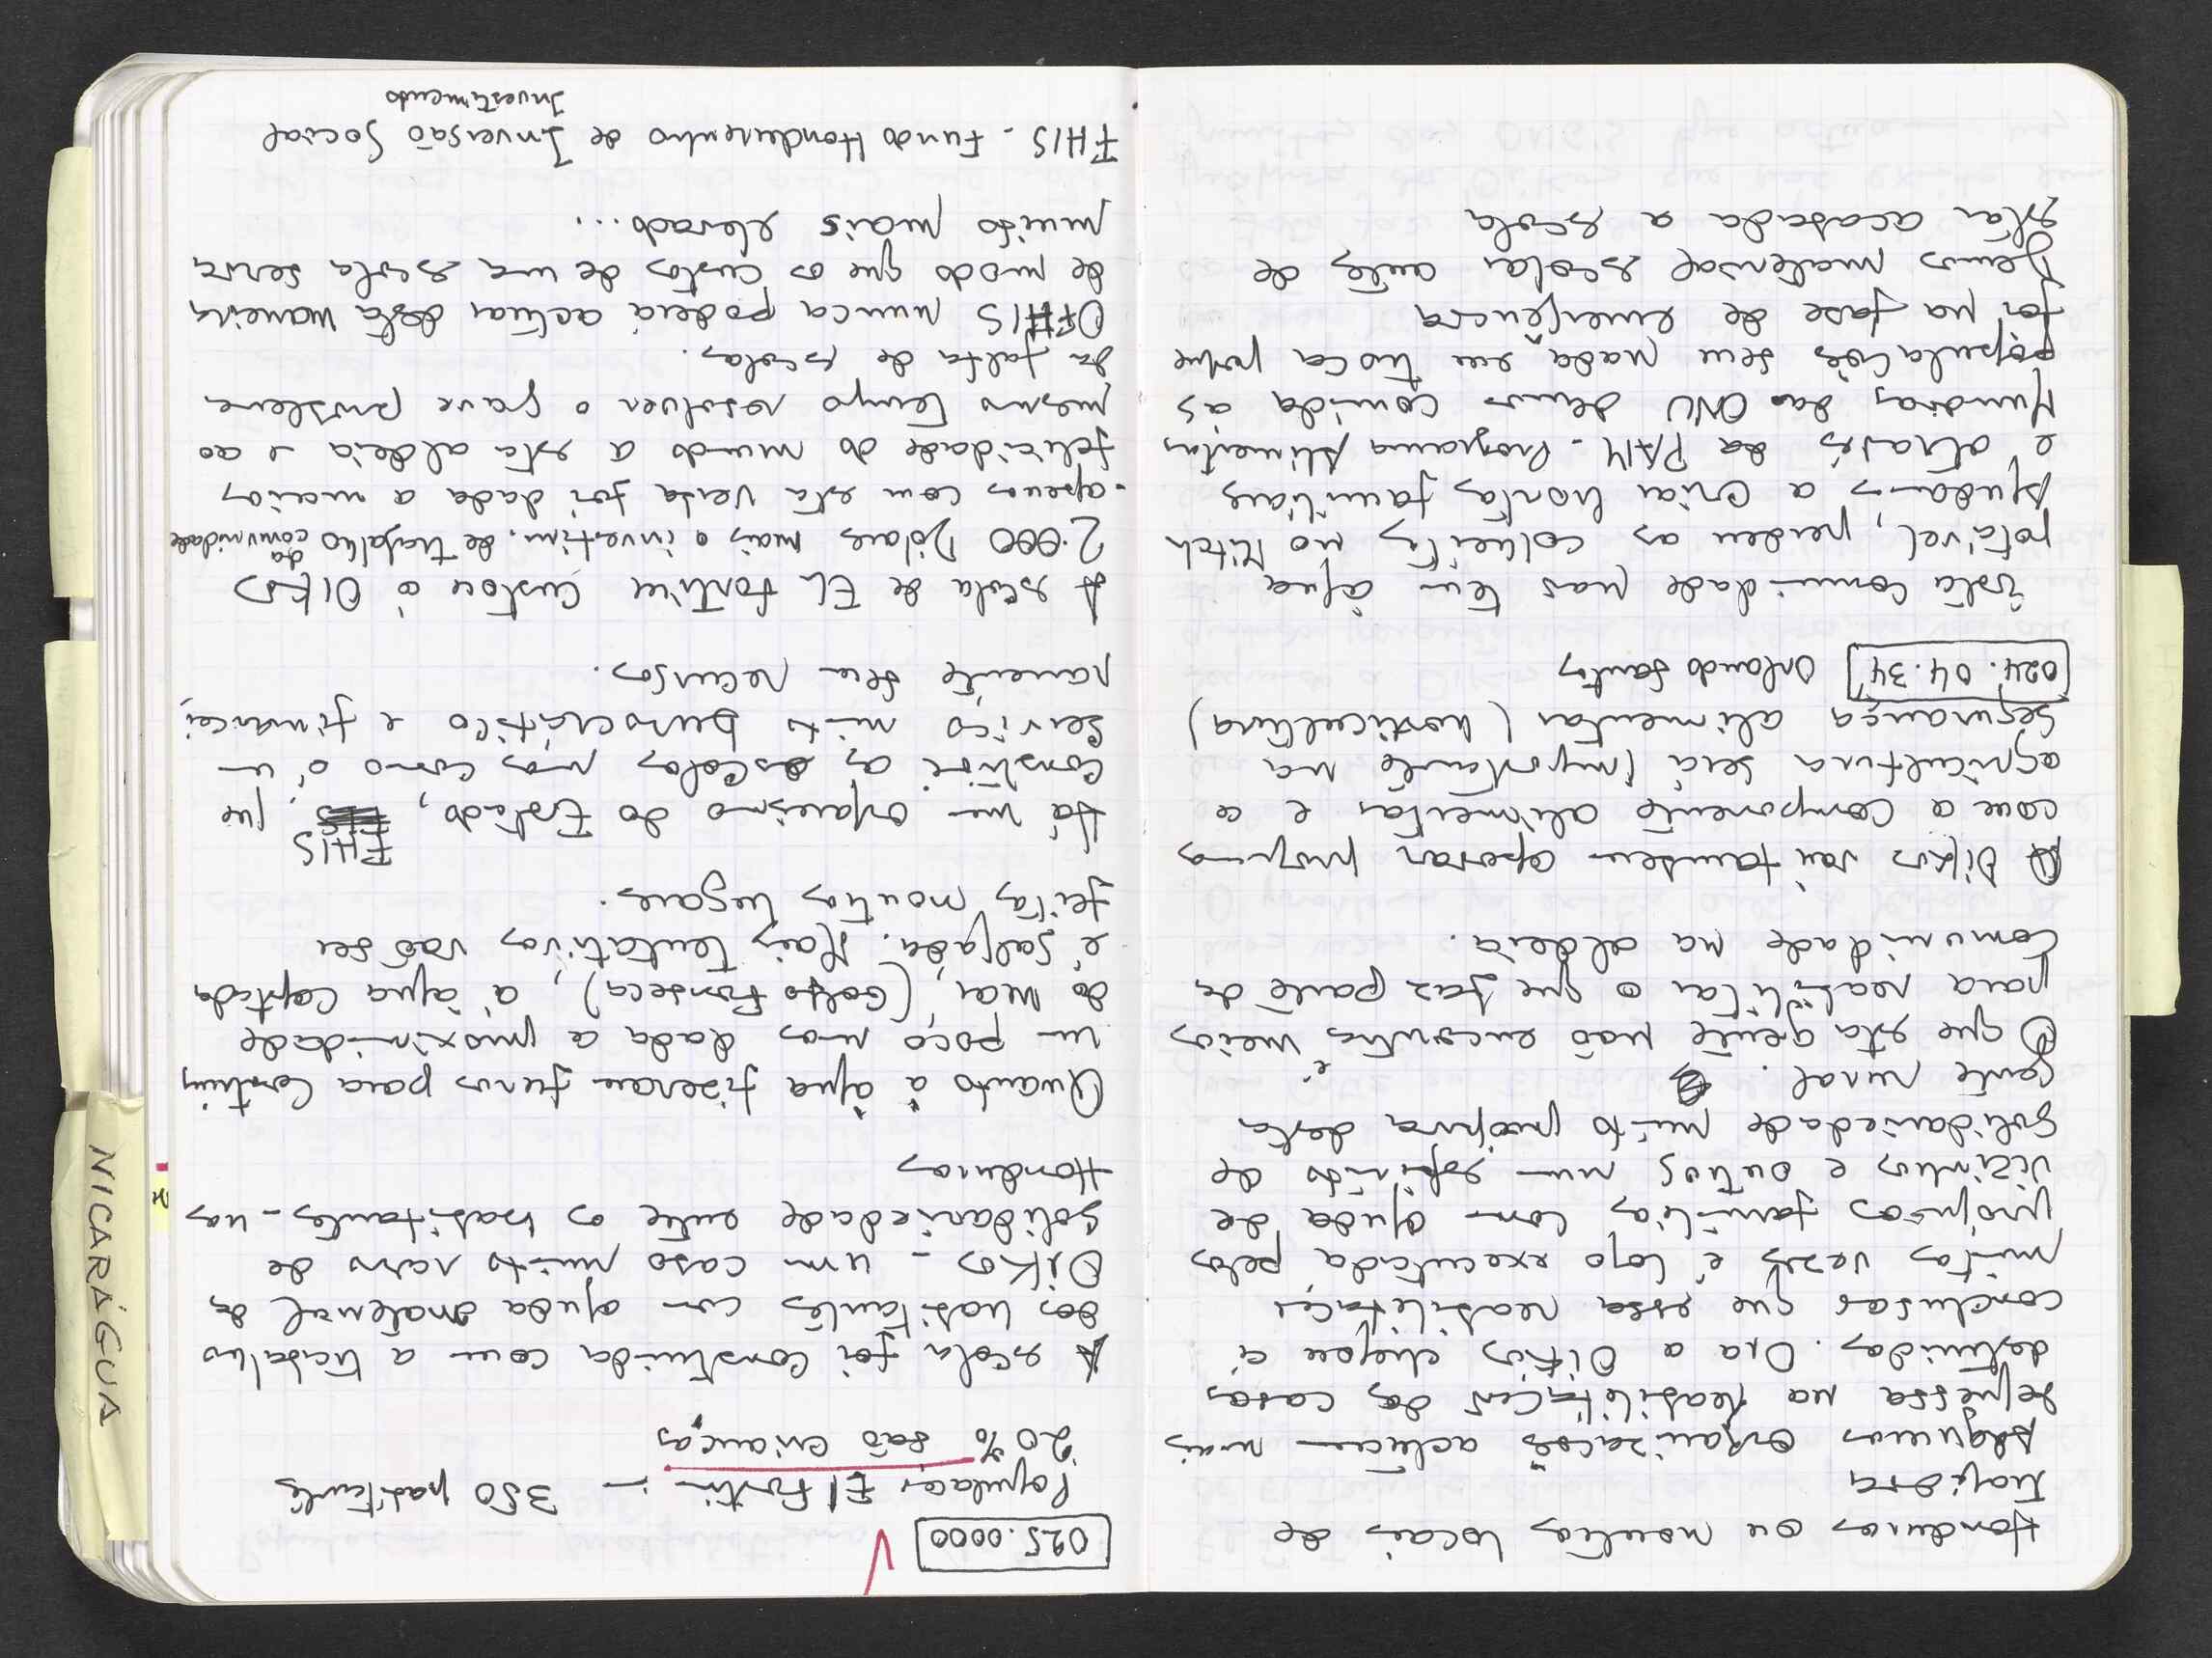 Honduras ou noutros locais de
tragédia
Algumas organizações actuam mais
depressa na reabilitações das casas
destruídas. Ora a Oikos chegou à
conclusão que essa reabilitação
muitas vezes é logo executada pelas
próprias famílias com ajuda de
vizinhos e outros num espírito de
solidariedade muito própria desta
gente rural.
O que esta gente não encontra é meios
para reabilitar o que faz parte da
comunidade na aldeia.
A Oikos vai também apoiar programas
com a componente alimentar e a
agricultura será importante na
segurança alimentar (horticultura)
024.04.34 Orlando Santos
Esta comunidade nas tem água
potável, perdeu as colheitas no Mitch
Ajudamos a criar hortas familiares
e através da PAM - Programa Alimentos
Mundias das ONU demos comida às
populações sem nada em troca porque
foi na fase de emergência
Demos material escolar antes de
estar acabada a escola
025.0000
População El Fortin - 350 habitantes
20% são crianças
A escola foi construída com a trabalho
dos habitantes com ajuda material da
Oikos - um caso muito raro de
solidariedade entre os habitantes - nas
Honduras
Quanto à água fizeram furos para construir
um poço mas dada a proximidade
do mar, (Golfo Fonseca), a água captada
é salgada. Mais tentativas vão ser
feitas noutros lugares.
Há um organismo do Estado, FHIS, que
constroi as escolas mas como é um
serviço muito burocrático e financei
ramente sem recursos.
A escola de El Fortin custou à Oikos
2.000 Dólares mais o investim. de trabalho da comunidade
- apenas com esta verba foi dada a maior
felicidade do mundo a esta aldeia e ao
mesmo tempo resolver o grave problema
da falta de escolas.
O FHIS nunca poderá actuar desta maneira
de modo que os custos de uma escola seria
muito mais elevado...
FHIS - Fundo Hondurenho de Inversão Social
Investimento
NICARÁGUA